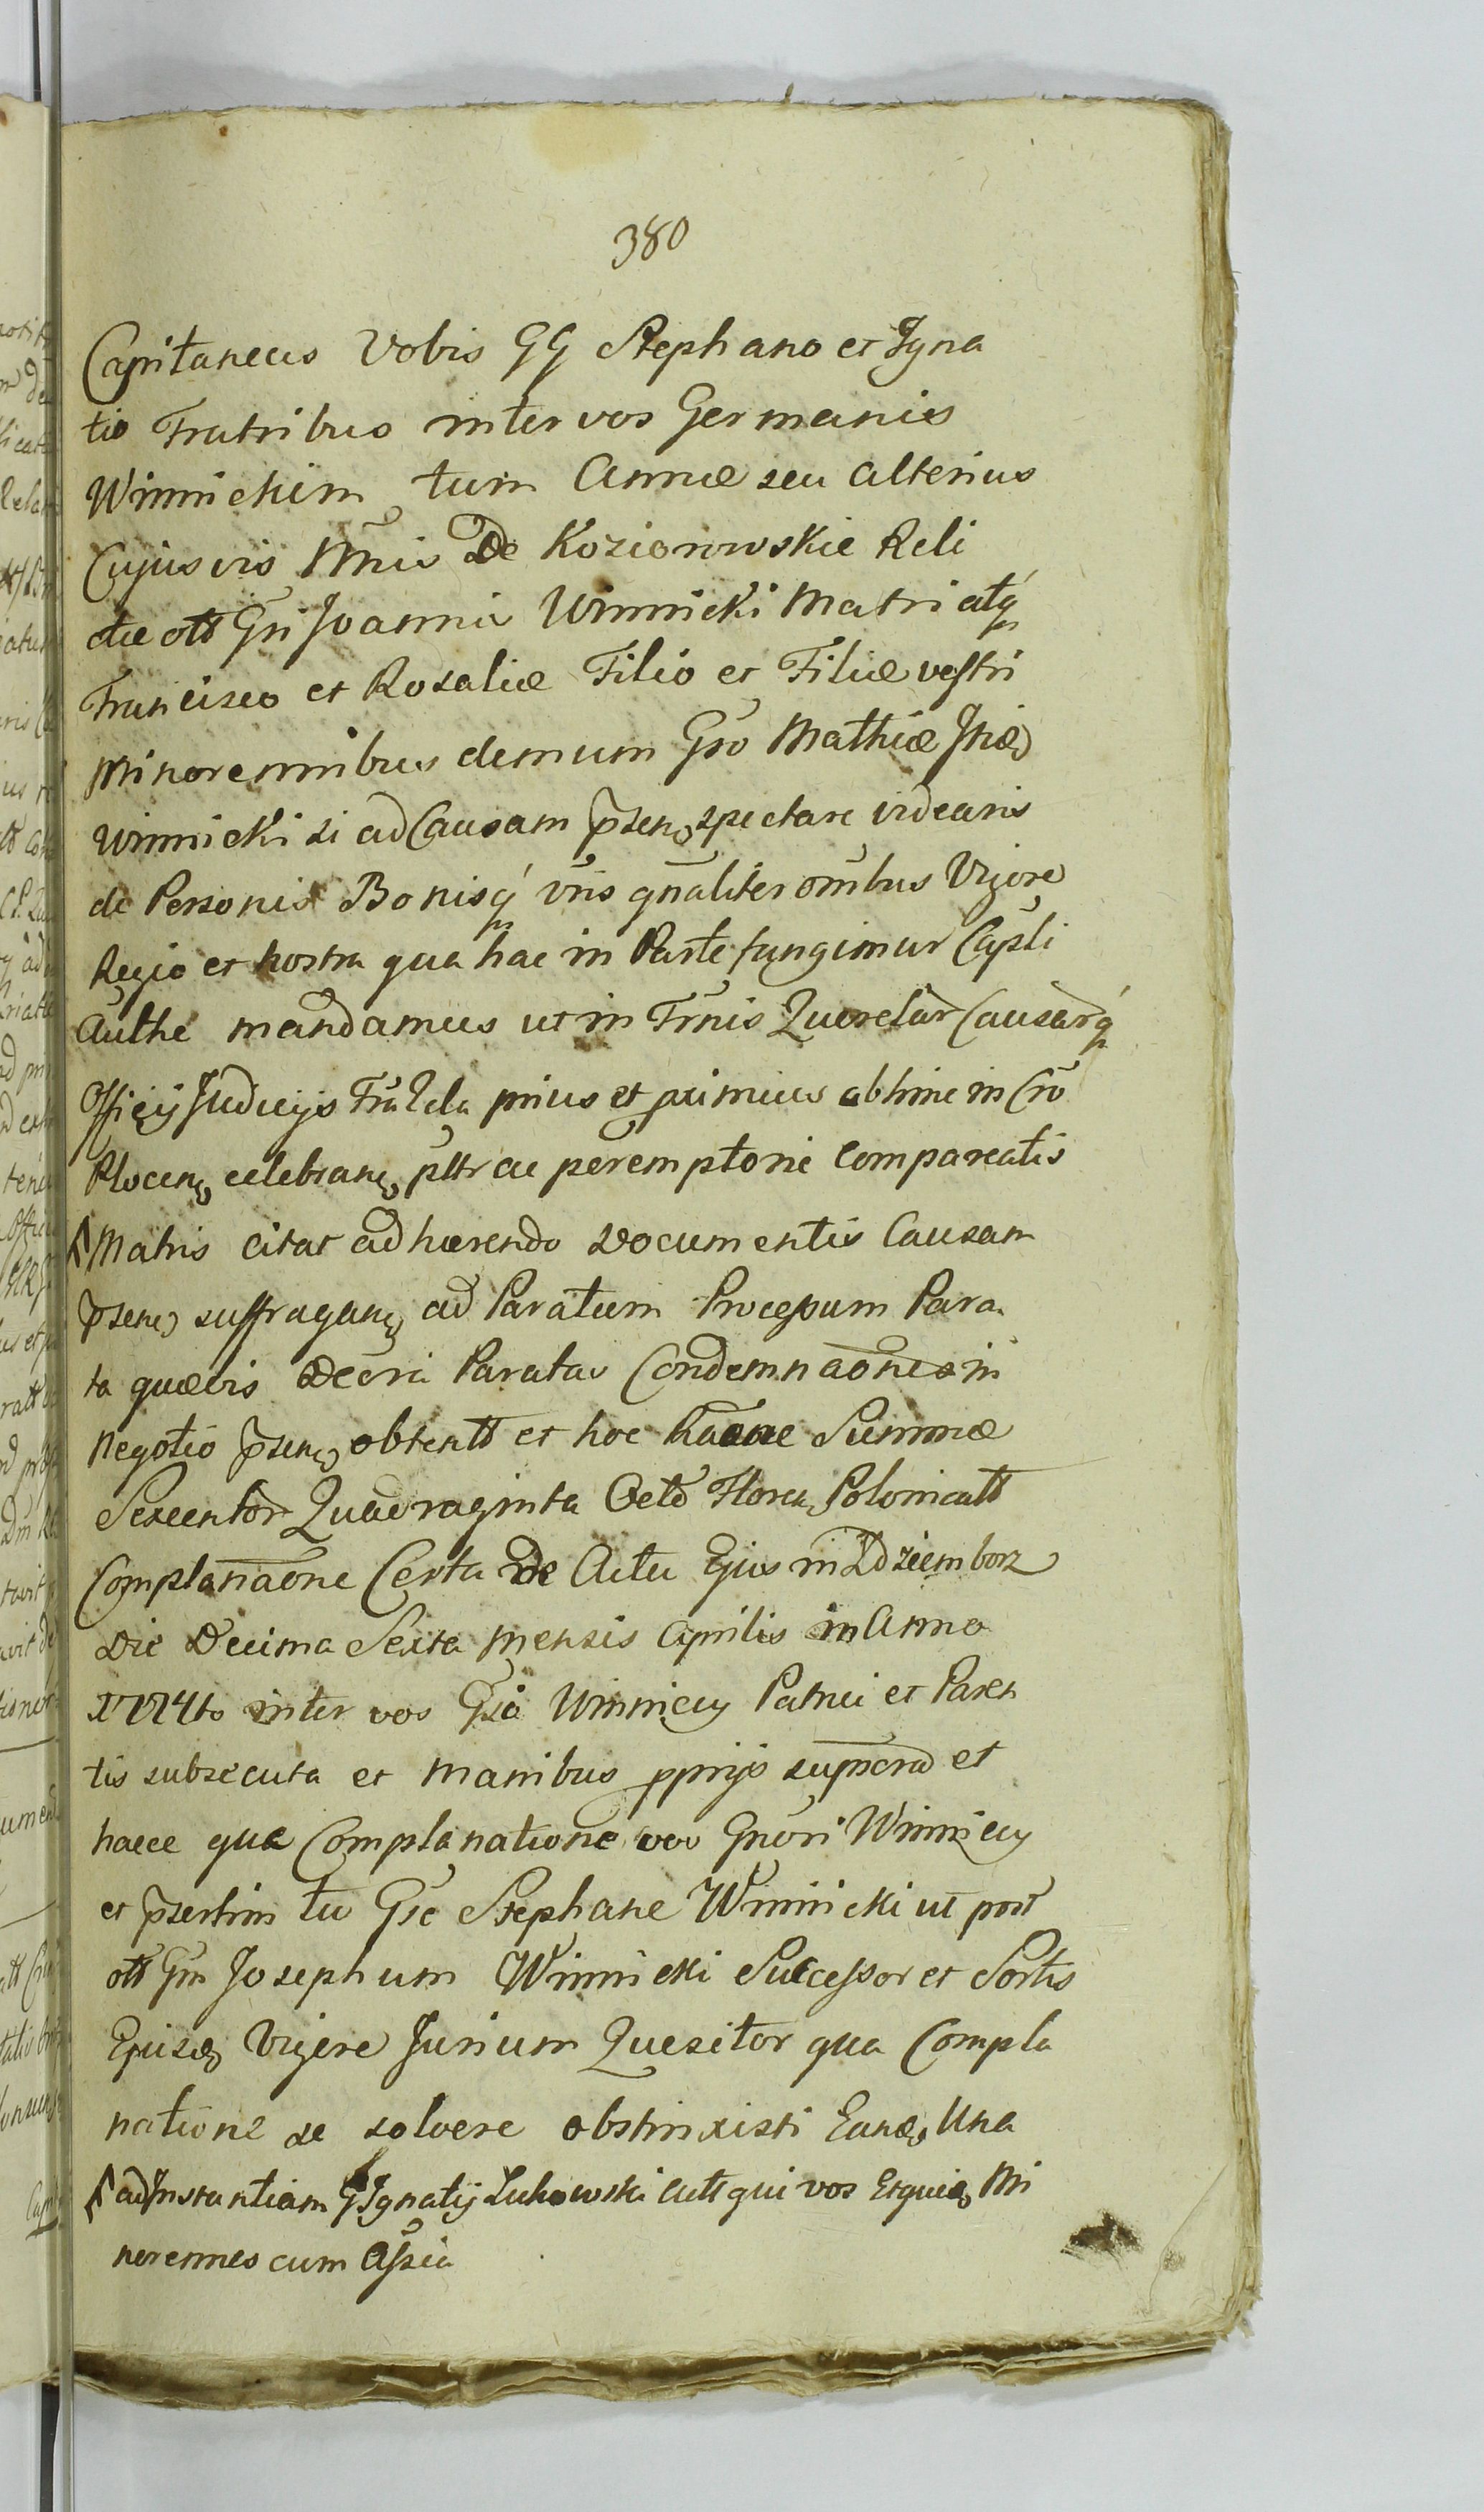 380
Capitaneus Vobis GG Stephano et Igna
tio Fratribus inter vos Germanis
Winnickim tum Annæ seu alterius
Cujusvis Nnis De Kozierowskie Reli
ctæ ott Gsi Joannis Winnicki Matri atq́
Francisco et Rosaliæ Filio et Filiæ vestri
Minorennibus demum Gso Mathiæ
Winnicki si ad Causam p̃sen, spectare videaris
de Personis Bonisq́ vris gñaliter omibus Vigore
Regio et nostra qua hac in Parte fungimur Capsli
Autħe mandamus ut in Trnis Querelar Causarq́
Officij Judicijs prius et primius abhinc in Cro
Plocen, celebran, pttr ac peremptorie compareatis
Matris citat adhærendo Documentis Causam
p̃sen, suffragan, ad Paratum Processum Para
ta quævis Decra Paratas Condemnaones in
negotio p̃sen, obtentt et hoc Summæ
Sexcentor Quadraginta Octo Floren, Polonicatt
Complanaone Certa De Actu Ejus in Zdziemborz
Die Decima Sexta Mensis Aprilis in Anno
1774to inter vos Gsa Winnicy Patrui et Paren
tis subsecuta et manibus pprijs et
haecce qua Complanatione vos Gnori Winnicy
et p̃sertim tu Gse Stephane Winnicki ut post
ott Gm Josephum Winnicki Successor et Sortis
Ejusd, Vigore Jurium Quesitor qua Compla
natione se solvere obstrinxisti Eand, Una
ad Instantiam G Ignatij Lukowski citatt qui vos Mi
norennes cum Assia